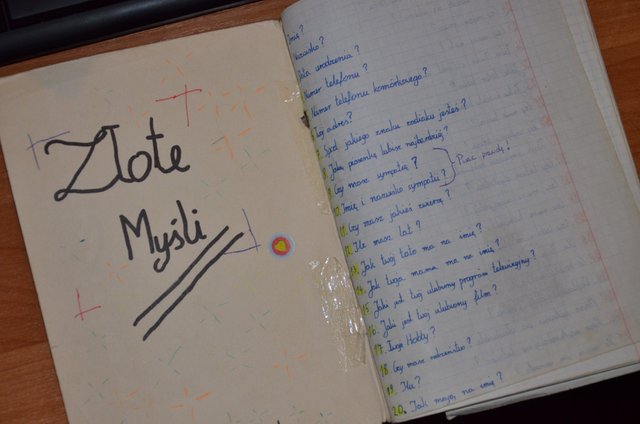 Złote
Myśli
Imię?
Nazwisko?
Data urodzenia?
Numer telefonu?
Numer telefonu komórkowego?
Twój adres?
7. Spod jakiego znaku zodiaku jesteś?
8. Jaką piosenkę lubisz najbardziej?
9. Czy masz sympatię?
10. Imię i nazwisko sympatii? } Pisać prawdę!
11. Czy masz jakieś zwierzę?
12. Ile masz lat?
13. Jak twój tato ma na imię?
14. Jak twoja mama ma na imię?
15. Jaki jest twój ulubiony program telewizyjny?
16. Jaki jest twój ulubiony film?
17. Twoje Hobby?
18. Czy masz rodzeństwo?
19. Ile?
20. Jak mają na imię?